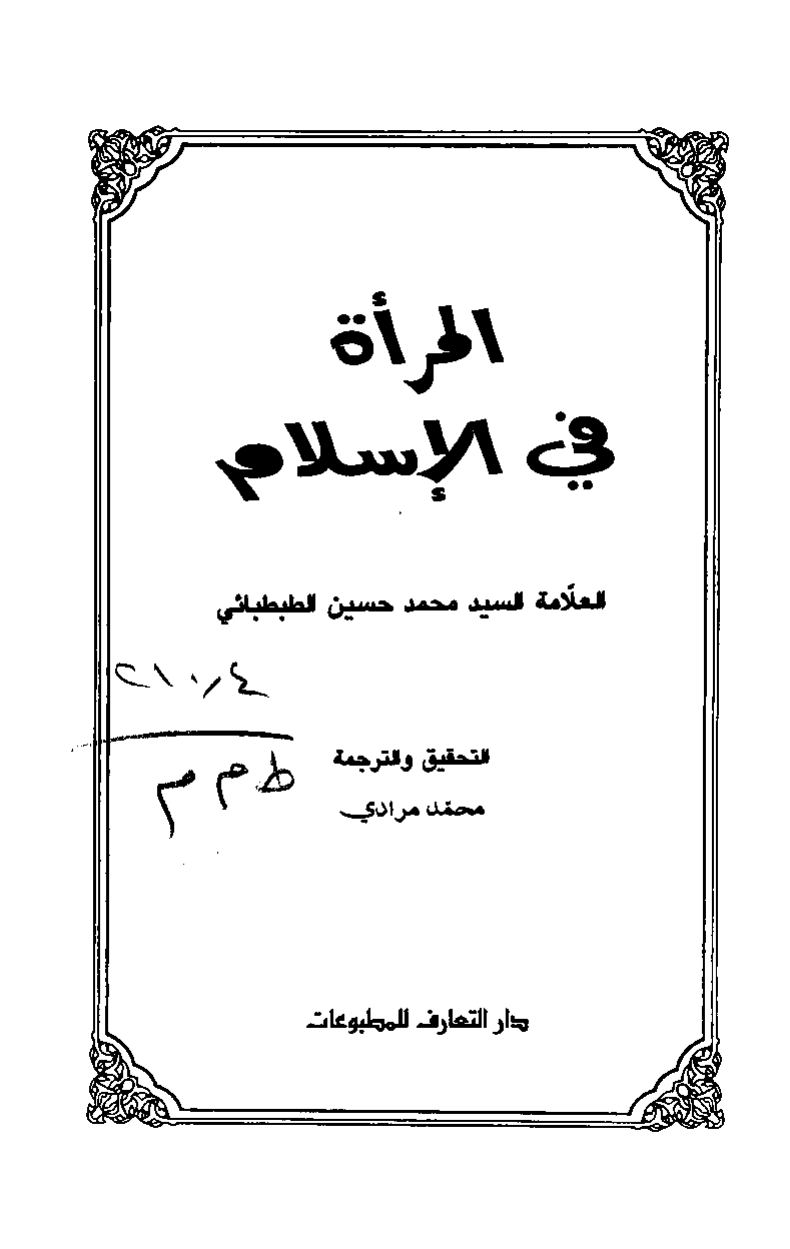 المرأة
في الإسلام
العلّامة السيد محمد حسين الطبطبائي
٢١٠/٤
ط م م
التحقيق والترجمة
محمّد مرادي
دار التعارف للمطبوعات